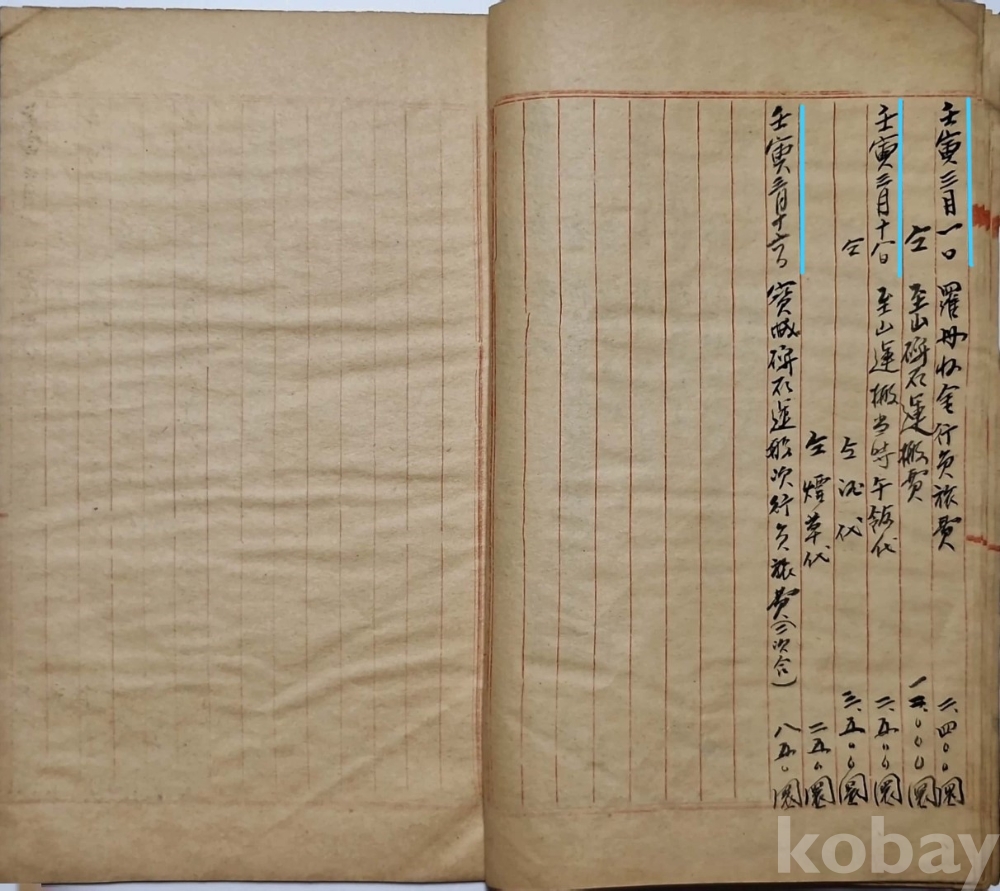 壬寅三月一日 羅州水金行負旅費 二、四〇〇圓
仝 至山碑石運搬費 一五、〇〇〇圓
壬寅三月十八日 至山運搬当時午飯代 二、五〇〇圓
仝 仝 酒代 三、五〇〇圓
仝 煙草代 二五〇圓
壬寅三月十六日 寶城碑石運搬次行負旅費(二次合) 八五〇圓
kobay